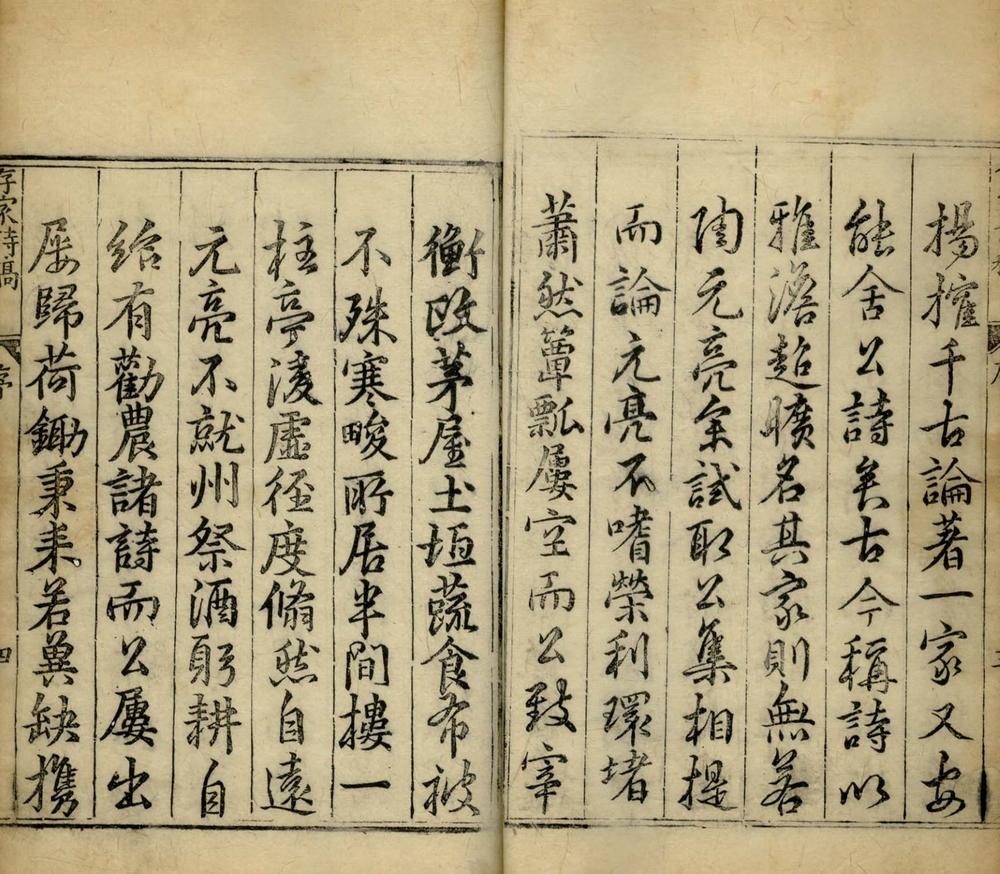 揚搉千古論著一家又安
能舍公詩矣古今稱詩以
雅澹超曠名其家則無若
陶元亮余試取公集相提
而論元亮不嗜榮利環堵
蕭然簞瓢屢空而公致宰
衡敀茅屋土垣蔬食布被
不殊寒畯所居半間摟一
柱亭淩虛徑度翛然自遠
元亮不就州祭酒躬耕自
給有勸農諸詩而公屢出
屢歸荷鋤秉耒若冀缺攜
存家詩稿
序
四